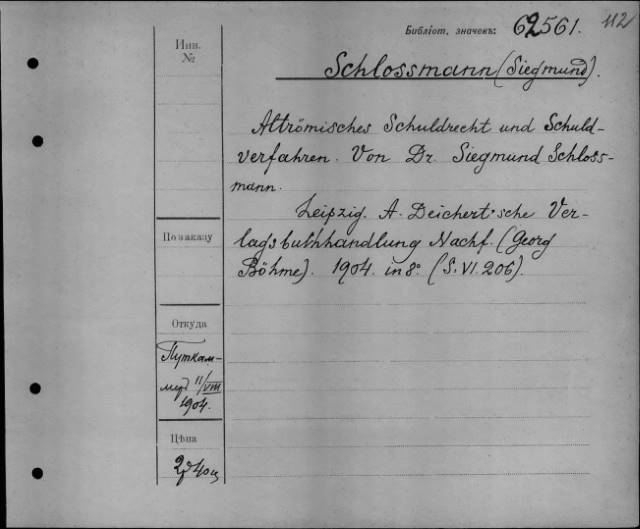 112
Библіот. значекъ: 62561.
Инв.
№
Schlossmann (Siegmund).
Altrömisches Schuldrecht und Schuld-
verfahren. Von Dr. Siegmund Schloss-
mann.
Leipzig. A. Deichert'sche Ver-
lagsbuchhandlung Nachf. (Georg
Böhme). 1904. in 8° (S. VI. 206).
По заказу
Откуда
Путкам-
меръ 11/VIII
1904.
Цѣна